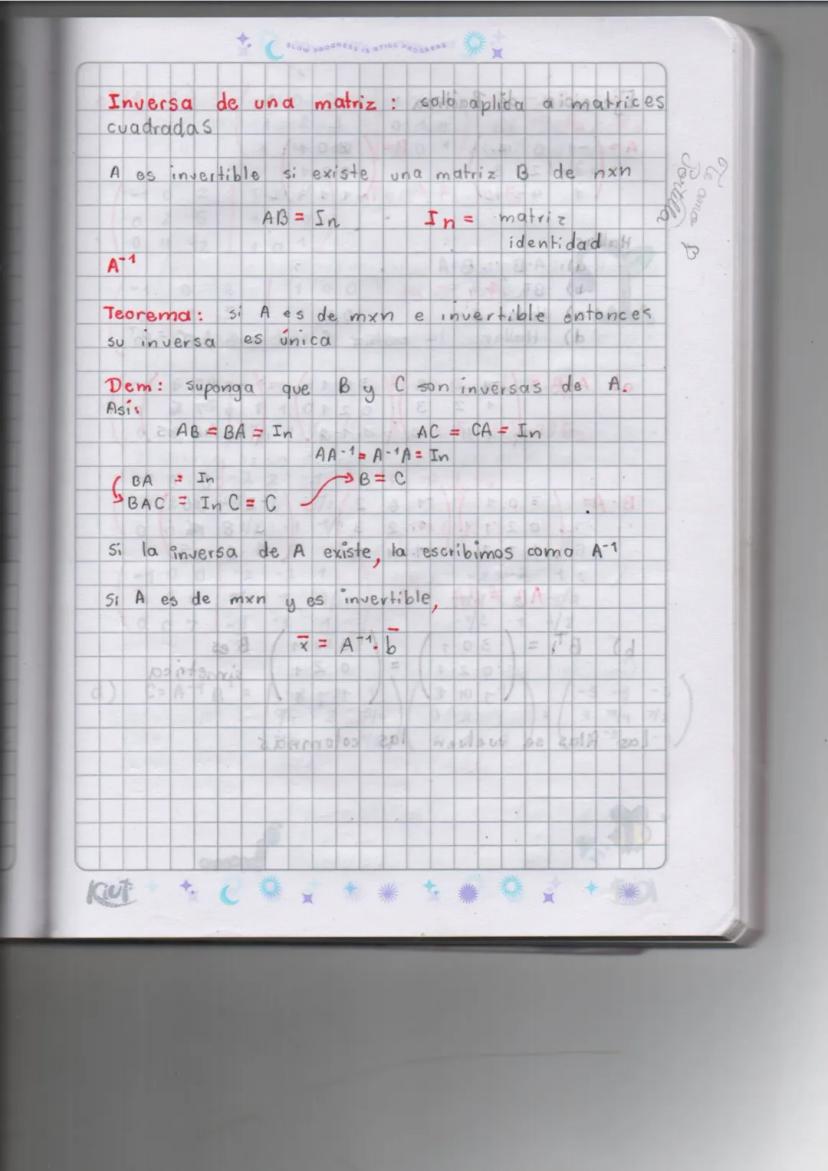 SLOW PROGRESS IS STILL PROGRESS
Inversa de una matriz : solo aplica a matrices
cuadradas
A es invertible si existe una matriz B de nxn
AB = In In = matriz
identidad
A⁻¹
Teorema: si A es de mxn e invertible entonces
su inversa es única
Dem: suponga que B y C son inversas de A.
Así:
AB = BA = In AC = CA = In
AA⁻¹ = A⁻¹A = In
BA = In B = C
BAC = In C = C
Si la inversa de A existe, la escribimos como A⁻¹
Si A es de mxn y es invertible,
x̄ = A⁻¹. b̄
Kiut